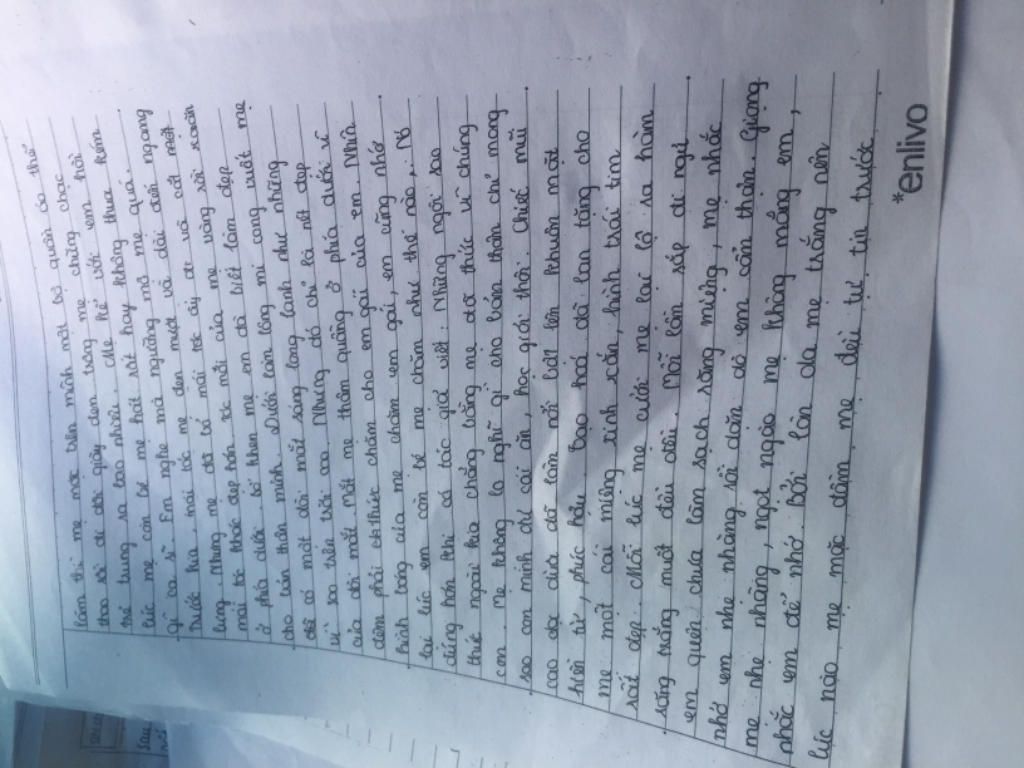 làm thì mẹ mặc trên mình một bộ quần áo thể
thao xỏ đi đôi giày đen trông mẹ chững chạc
thế tung ra bao nhiêu. Mẹ kể với em hồi
lúc mẹ còn bé mẹ hát rất hay không thua kém
gì ca sĩ. Em nghe mà ngưỡng mộ mẹ quá.
Trước kia mái tóc mẹ đen mượt và dài đến ngang
lưng. Nhưng mẹ đã bỏ mái tóc ấy đi và cắt một
mái tóc khác đẹp hơn, tóc mới của mẹ vàng rồi xoăn
ở phía dưới. Bố khen mẹ em đã biết làm đẹp
cho bản thân mình. Dưới làn lông mi cong vuốt mẹ
đã có một đôi mắt sáng long lanh như những
vì sao trên trời cao. Nhưng đó chỉ là nét đẹp
của đôi mắt mắt mẹ thâm quầng ở phía dưới vì
đêm phải dathức chăm cho em gái của em. Nhìn
hình bóng của mẹ chăm em gái, em cũng nhớ
lại lúc em còn bé mẹ chăm như thế nào. Nó
đúng hơn khi có tác giả viết: Những ngôi sao
thức ngoài kia chẳng bằng mẹ đã thức vì chúng
con. Mẹ không lo nghĩ gì cho bản thân chỉ mong
sao con mình đủ cái ăn, học giỏi thôi. Chiếc mũi
cao dọc dừa đã làm nổi bật lên khuôn mặt
hiền từ phúc hậu. Tạo hoá đã ban tặng cho
mẹ một cái miệng xinh xắn, hình trái tim
rất đẹp. Mỗi lúc mẹ cười mẹ lại lộ ra hàm
răng trắng muốt đều đều. Mỗi lần sắp đi ngủ
em quên chưa làm sạch răng miệng, mẹ nhắc
nhở em nhẹ nhàng rồi dặn dò em cẩn thận. Giọng
mẹ nhẹ nhàng, ngọt ngào mẹ không mắng em,
nhắc em để nhớ. Bởi làn da mẹ trắng nên
lúc nào mẹ mặc đậm mẹ đợi tự tin trước
*enlivo